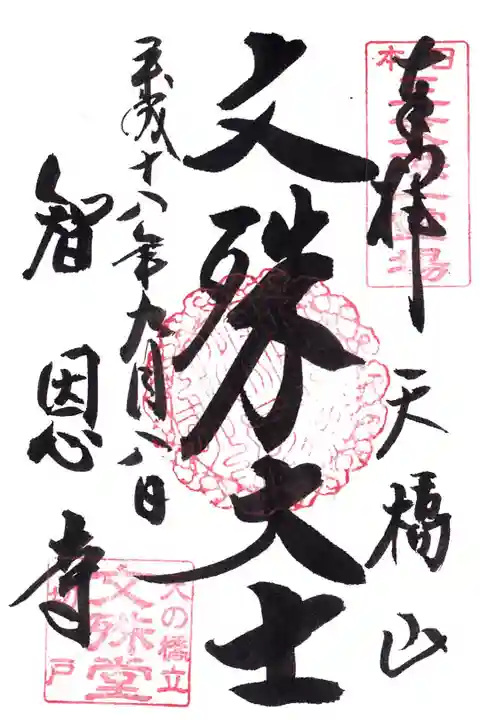 奉拝
天橋山
日本三文殊霊場
文殊大士
平成十八年九月八日
智恩寺
天の橋立
文殊堂
切戸